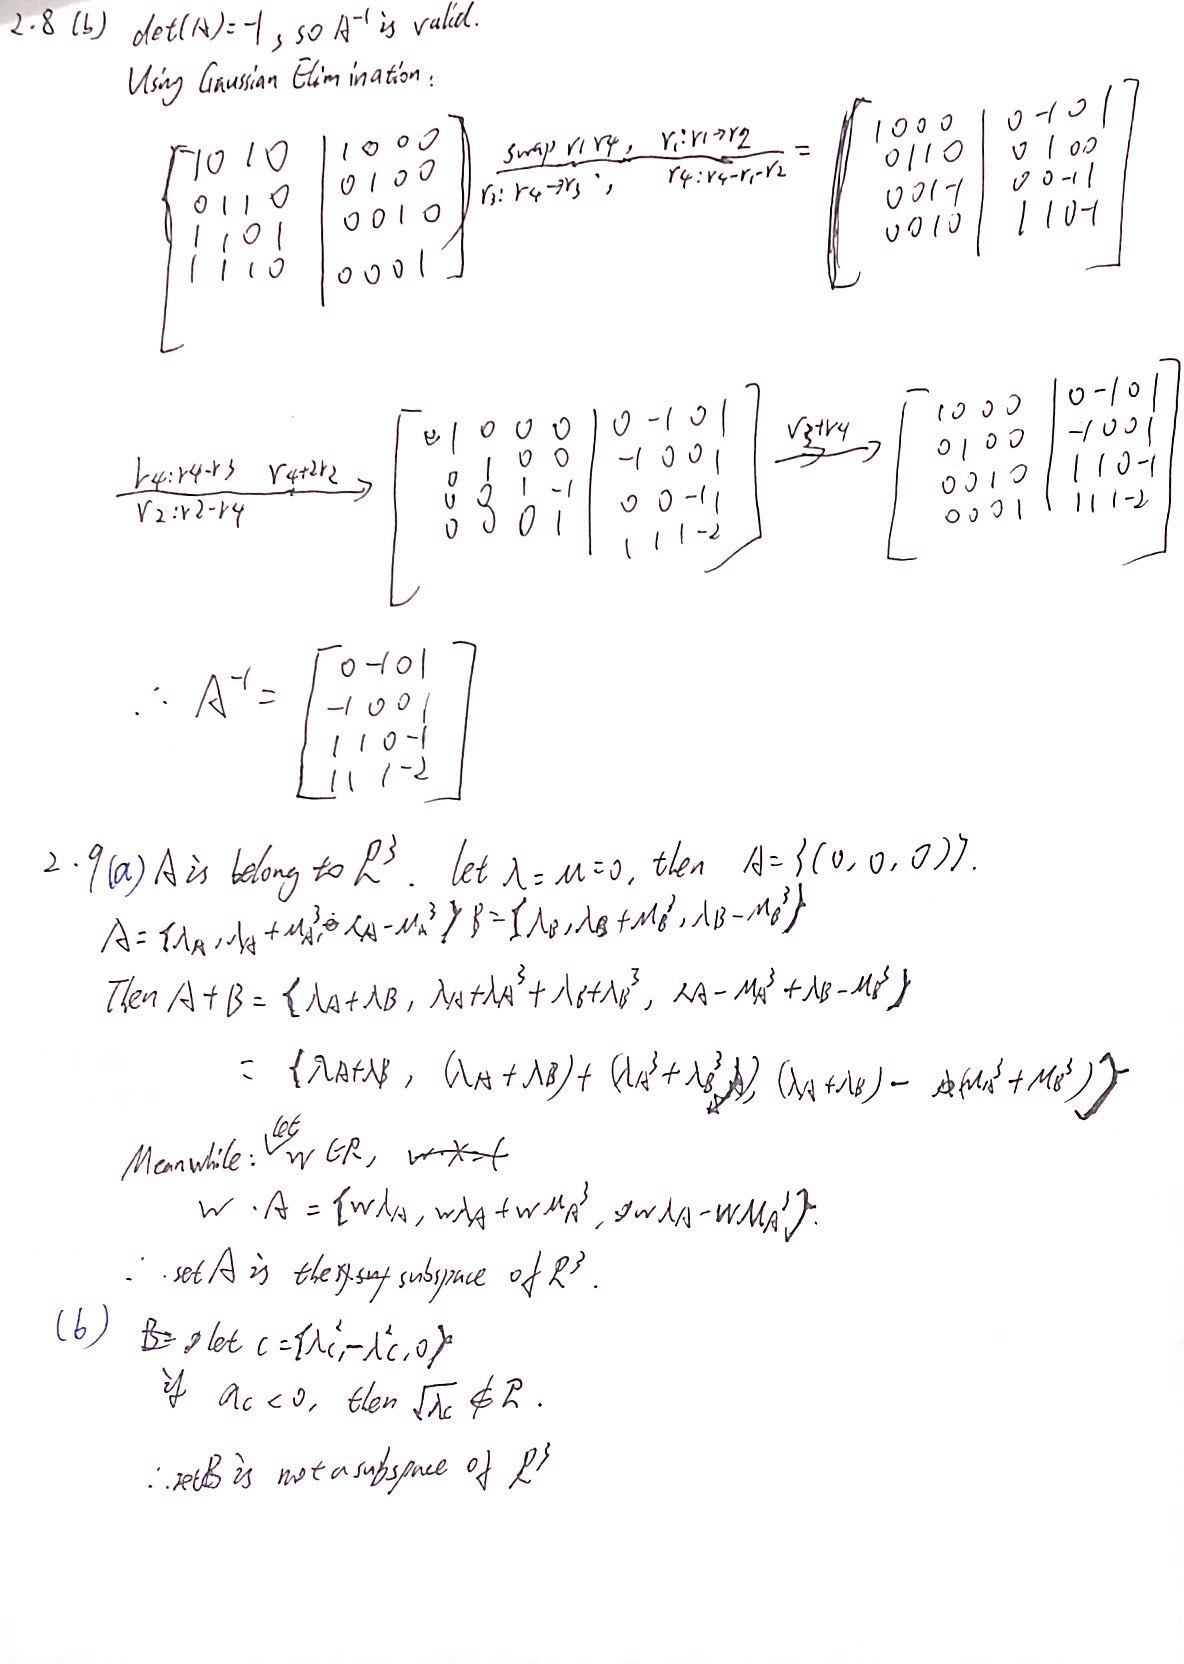 2.8 (b) det(A)=-1, so A⁻¹ is valid.
Using Gaussian Elimination:
[1 0 1 0 | 1 0 0 0] swap r1 r4, r1: r1→r2 = [1 0 0 0 | 0 -1 0 1]
[0 1 1 0 | 0 1 0 0] r3: r4→r3, r4: r4-r1-r2 [0 1 1 0 | 0 1 0 0]
[1 1 0 1 | 0 0 1 0] [0 0 1 -1 | 0 0 -1 1]
[1 1 1 0 | 0 0 0 1] [0 0 1 0 | 1 1 0 -1]
r4: r4-r3 r4+2r2 [1 0 0 0 | 0 -1 0 1] r3+r4 [1 0 0 0 | 0 -1 0 1]
r2: r2-r4 [0 1 0 0 | -1 0 0 1] [0 1 0 0 | -1 0 0 1]
[0 0 1 -1 | 0 0 -1 1] [0 0 1 0 | 1 1 0 -1]
[0 0 0 1 | 1 1 1 -2] [0 0 0 1 | 1 1 1 -2]
∴ A⁻¹ = [0 -1 0 1]
[-1 0 0 1]
[1 1 0 -1]
[1 1 1 -2]
2.9 (a) A is belong to R³. let λ=μ=0, then A={(0,0,0)}.
A={λA, λA+μA³, λA-μA³} B={λB, λB+μB³, λB-μB³}
Then A+B = {λA+λB, λA+λA³+λB+λB³, λA-μA³+λB-μB³}
= {λA+λB, (λA+λB)+(λA³+λB³), (λA+λB)-(μA³+μB³)}
Meanwhile: let w∈R,
w·A = {wλA, wλA+wμA³, wλA-wμA³}.
∴ set A is the subspace of R³.
(b) let c={λc², -λc², 0}
if ac<0, then √λc ∉ R.
∴ set B is not a subspace of R³